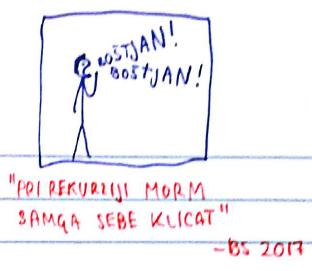 BOŠTJAN!
BOŠTJAN!
"PRI REKURZIJI MORM
SAMGA SEBE KLICAT"
-BS 2017